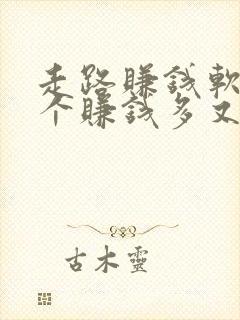 走路賺錢軟
个賺錢多又
古木靈